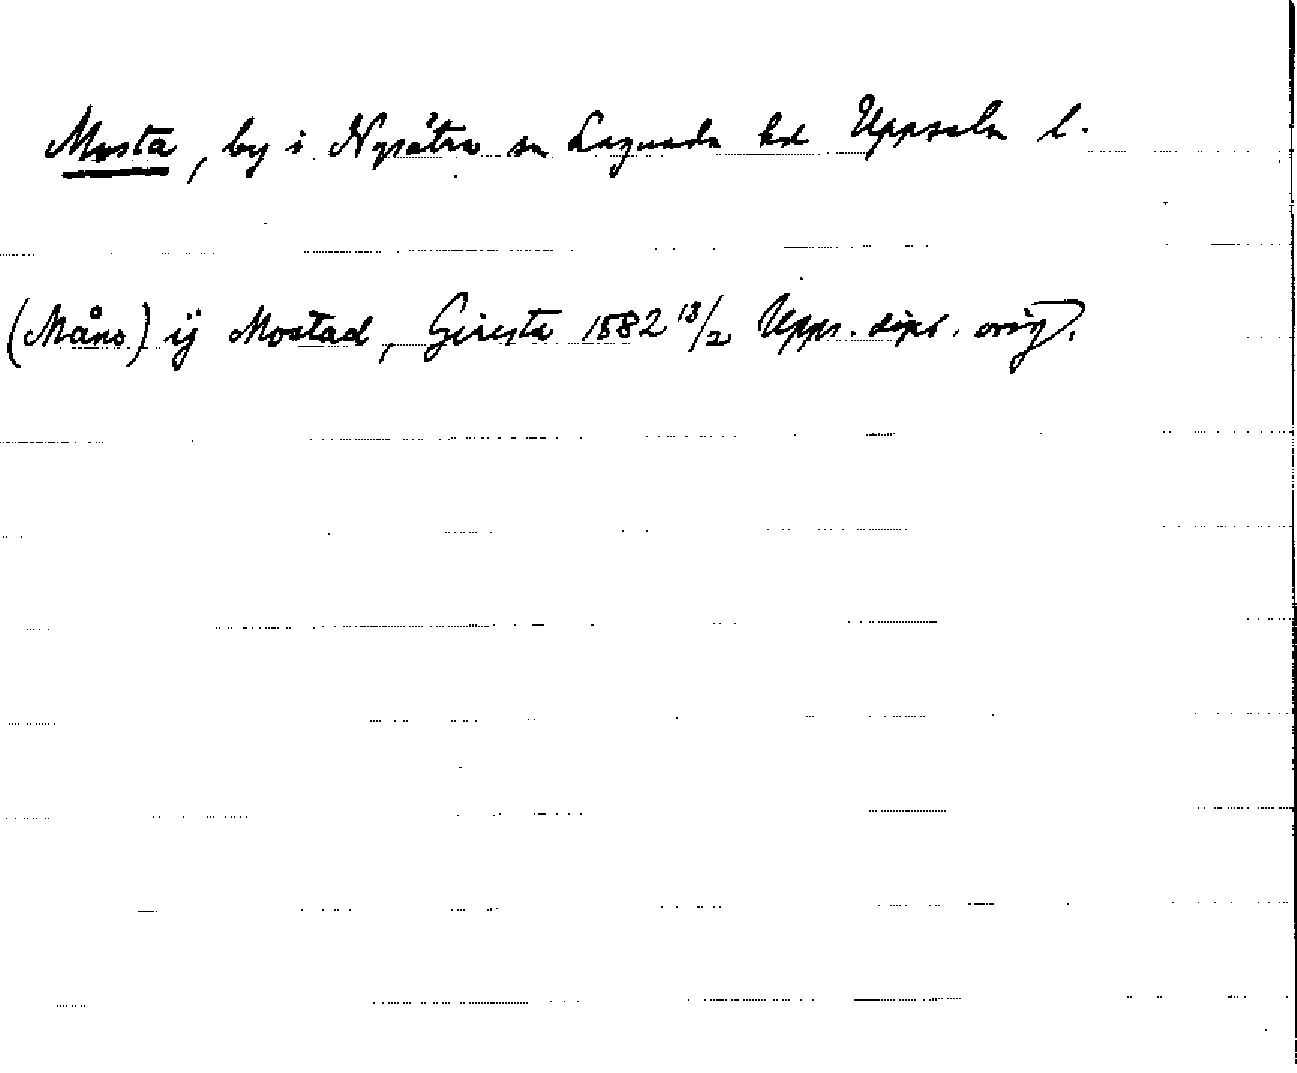 Mosta, by i Nysätra sn Lagunda hd Uppsala l.
(Måns) ij Mostad, Giresta 1582 13/2 Upps. dipl. orig.